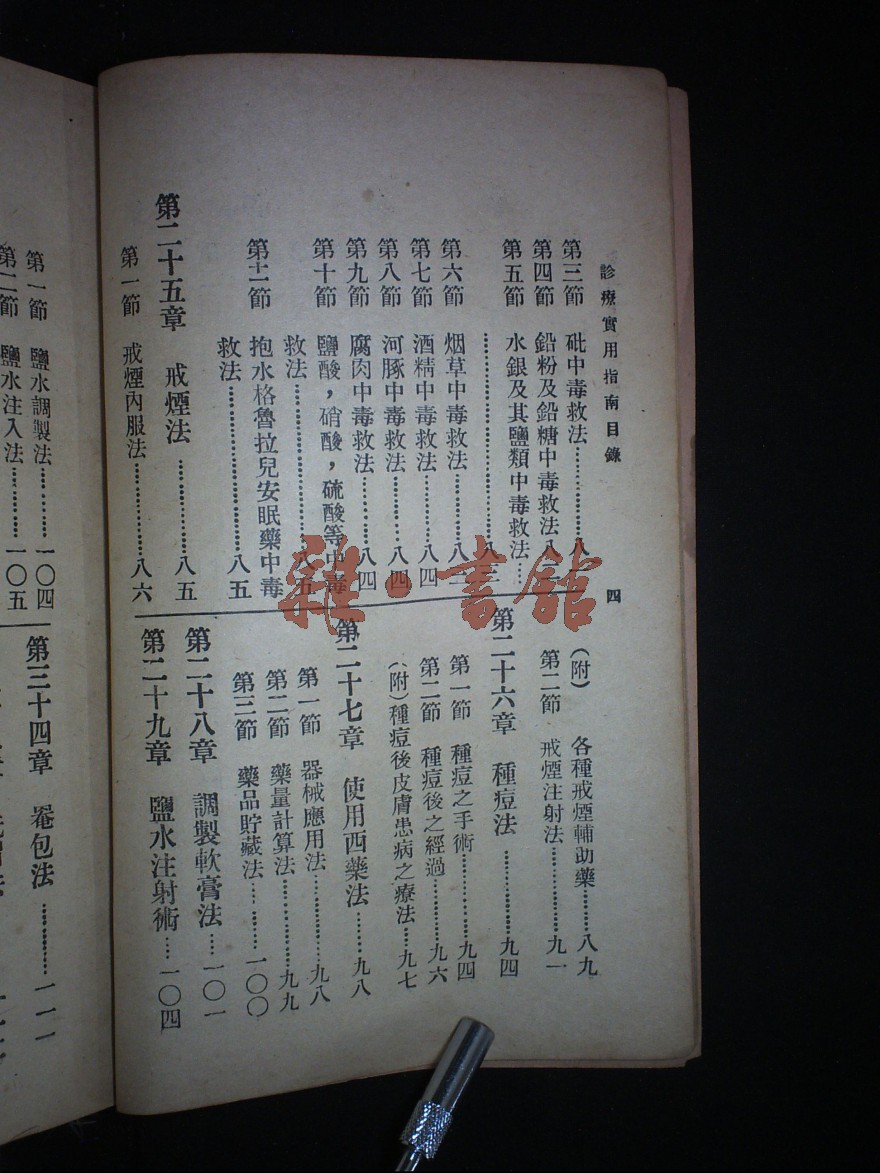 診療實用指南目錄
四
第三節 砒中毒救法
第四節 鉛粉及鉛糖中毒救法
第五節 水銀及其鹽類中毒救法……
第六節 烟草中毒救法
第七節 酒精中毒救法……八四
第八節 河豚中毒救法……八四
第九節 腐肉中毒救法……八四
第十節 鹽酸，硝酸，硫酸等中毒
救法……八五
第十一節 抱水格魯拉兒安眠藥中毒
救法……八五
第二十五章 戒煙法……八五
第一節 戒煙內服法……八六
(附) 各種戒煙輔助藥……八九
第二節 戒煙注射法……九一
第二十六章 種痘法……九四
第一節 種痘之手術……九四
第二節 種痘後之經過……九六
(附)種痘後皮膚患病之療法……九七
第二十七章 使用西藥法……九八
第一節 器械應用法……九八
第二節 藥量計算法……九九
第三節 藥品貯藏法……一〇〇
第二十八章 調製軟膏法……一〇一
第二十九章 鹽水注射術……一〇四
第一節 鹽水調製法……一〇四
第二節 鹽水注入法……一〇五
第三十四章 罨包法……一一一
雜·書館